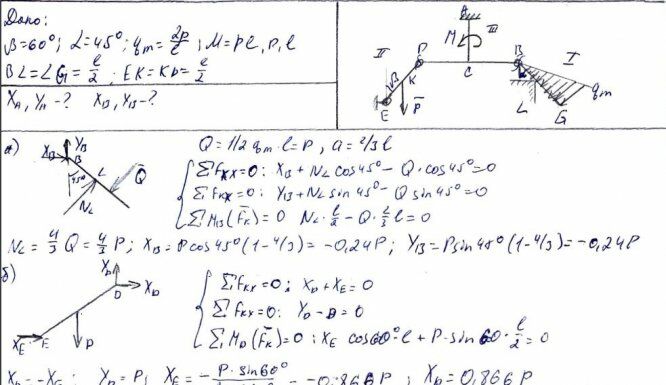 Дано:
β=60°; α=45°; qm=2p/l; M=Pl, P, l
BL=LG=l/2; EK=KD=l/2
XA, YA-? XB, YB-?
A
M
III
II
D
B
I
C
K
β
L
qm
E
P̄
G
а)
YB
XB
B
L
Q̄
45°
NL
Q=1/2 qm·l=P, a=2/3l
ΣFkx=0: XB+NL cos45°-Q·cos45°=0
ΣFkx=0: YB+NL sin45°-Q sin45°=0
ΣMB(F̄k)=0 NL·l/2-Q·2/3l=0
NL=4/3Q=4/3P; XB=Pcos45°(1-4/3)=-0,24P; YB=Psin45°(1-4/3)=-0,24P
б)
YD
XD
D
XE
E
P
ΣFkx=0: XD+XE=0
ΣFkx=0: YD-P=0
ΣMD(F̄k)=0: XE cos60°·l+P·sin60·l/2=0
XD=-XE; YD=P; XE=-P·sin60° =-0,866P; XD=0,866P